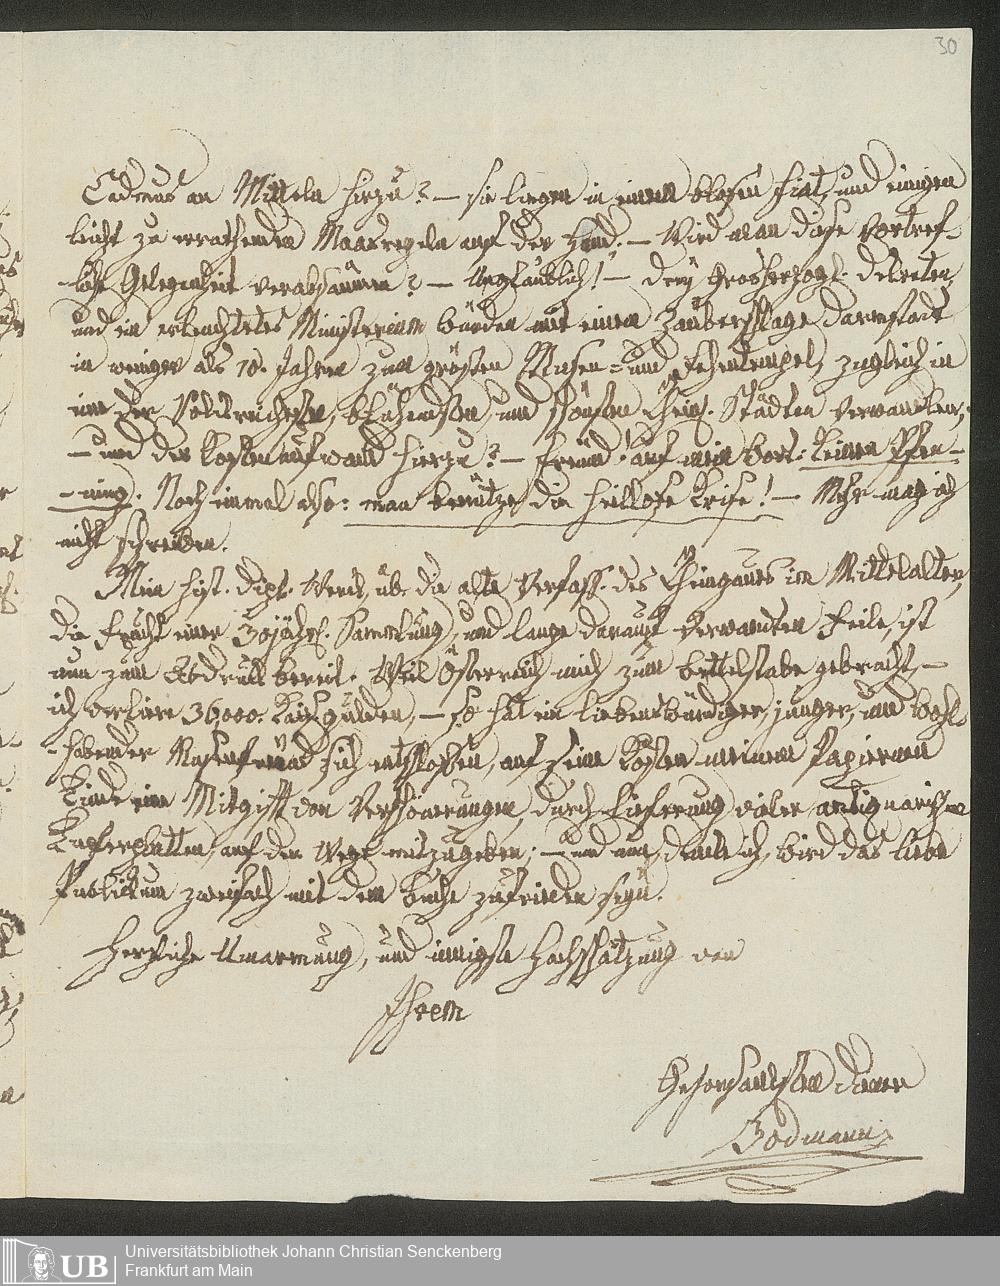 30
Cadmus an Mitteln hierzu? — sie liegen in einem blosen Fiat, und einigen
leicht zu errathenden Maasregeln auf der Hand. — Wird man diese vortref-
-liche Gelegenheit verabsäumen? — Unglaublich! — Drey Grosherzogl. Dekreten,
und ein erleuchtetes Ministerium würden mit einem Zauberschlage Darmstadt
in weniger als 10. Jahren zum grösten Musen = und Tempel, zugleich in
eine der Volkreichesten, blühendsten, und schönsten Rhein. Städten verwandlen;
— und der Kostenaufwand hierzu? — Freund! auf mein Wort: keinen Pfen-
-ning. Noch einmal also: man benütze die heillose Krise! — Mehr mag ich
nicht schreiben.
Mein hist. dipl. Werk, üb. die alte Verfass. des Rheingaues im Mittelalter,
die Frucht einer 30jähr. Sammlung, und lange darauf verwandten Feile, ist
nun zum Abdruck bereit. Weil Österreich mich zum Bettelstabe gebracht, —
ich verliere 36,000. Kais. gulden, — so hat ein liebenswürdiger, junger, und wohl-
-habender Musenfreund sich entschlossen, auf seine Kosten meinem Papiernen
Kinde eine Mitgift von Verschönerungen, durch Lieferung vieler antiquarischen
Kupferplatten, auf den Weg mitzugeben; — und nun, denke ich, wird das liebe
Publikum zweifach mit dem Buche zufrieden seyn.
Herzliche Umarmung, und innigste Hochschätzung von
Ihrem
Gehorsamsten Diener
Bodmann
UB
Universitätsbibliothek Johann Christian Senckenberg
Frankfurt am Main